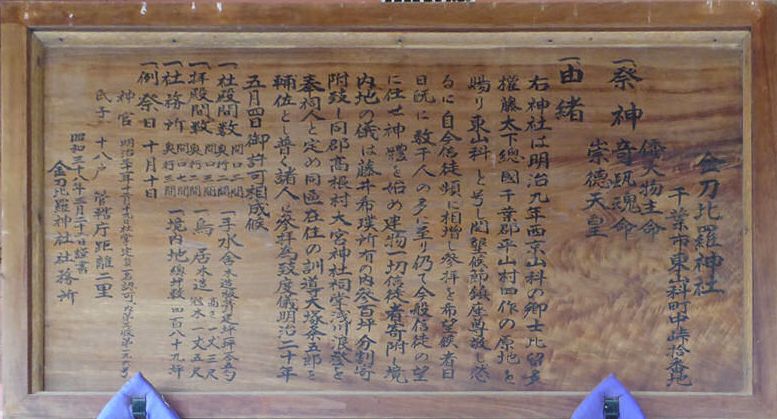 金刀比羅神社
千葉市東山科町中峠拾番地
一祭神
倭大物主命
奇玑魂命
崇徳天皇
一由緒
右神社は明治九年西京山科の郷士比留多
権藤太下總國千葉郡平山村四作の原地を
賜り東山科と号し開墾候節鎮座尊敬し
るに自今信徒頻に相増し参拝を希望候者日
日既に数千人の多に至り仍て今般信徒の望
に任せ神體を始め建物一切信徒者寄附境
内地の儀は藤井希璞所有の内参百坪分割寄
附致し同郡髙根村大宮神社祠掌浅川浪敬を
奉祠人と定め同區在住の訓導大塚条五郎を
輔佐とし普く諸人に参拝為致度儀明治二十年
五月四日御許可相成候
一社殿間数 間口二間 奥行三間
一手水舎 木造
一拝殿間数 間口三間 奥行二間
一鳥居 木造 高さ一丈三尺 冠木一丈五尺
一社務所 間口二間 奥行三間
一境内地 總坪数四百八十九坪
一例祭日 十月十日
神官
氏子 十八戸 管轄庁距離二里
昭和三十八年三月二十一日謹書
金刀比羅神社社務所